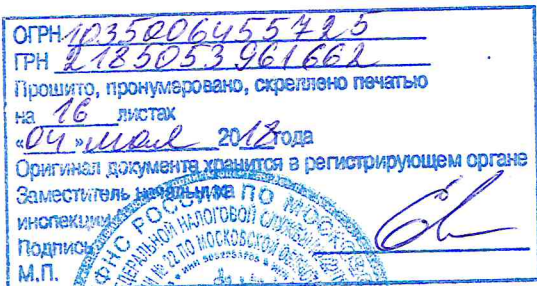 ОГРН 1035006455725
ГРН 2185053961662
Прошито, пронумеровано, скреплено печатью
на 16 листах
«04» мая 2018 года
Оригинал документа хранится в регистрирующем органе
Заместитель начальника
инспекции
Подпись
М.П.
ФНС РОССИИ ПО МОСКО
ФЕДЕРАЛЬНОЙ НАЛОГОВОЙ СЛУЖБЫ
№ 22 ПО МОСКОВСКОЙ ОБЛ